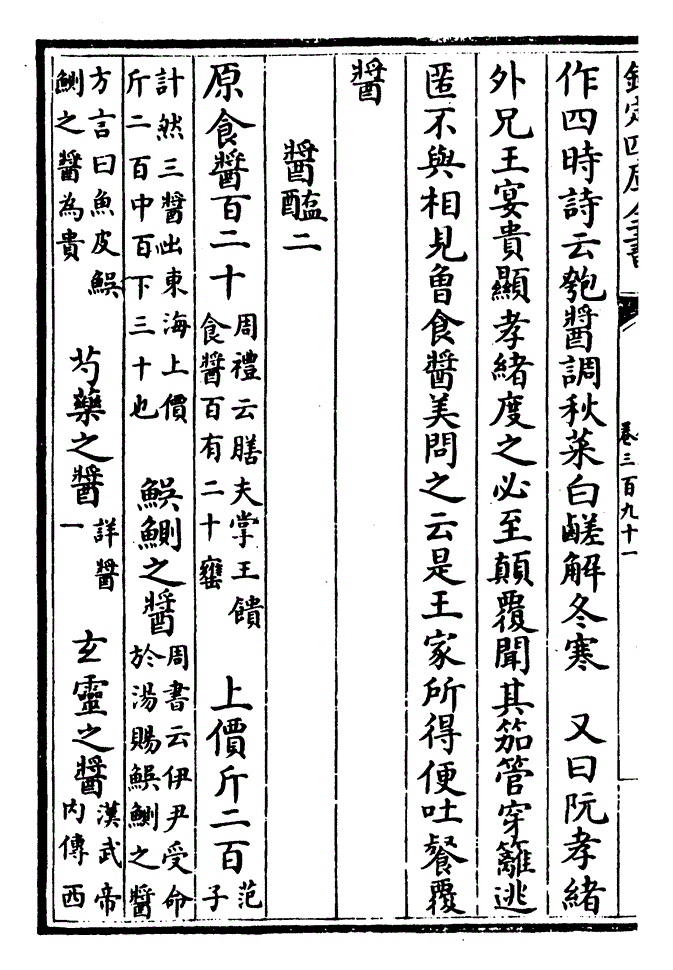 欽定四庫全書
卷三百九十一
作四時詩云匏醬調秋菜白鹺解冬寒　又曰阮孝緒
外兄王宴貴顯孝緒度之必至顛覆聞其笳管穿籬逃
匿不與相見曾食醬美問之云是王家所得便吐餐覆
醬
醬醢二
原食醬百二十 周禮云膳夫掌王饋食醬百有二十罋　上價斤二百 范子
計然三醬出東海上價斤二百中百下三十也　䱋鰂之醬 周書云伊尹受命於湯賜䱋鰂之醬
方言曰魚皮䱋鰂之醬為貴　芍藥之醬 詳醬一　玄靈之醬 漢武帝內傳西